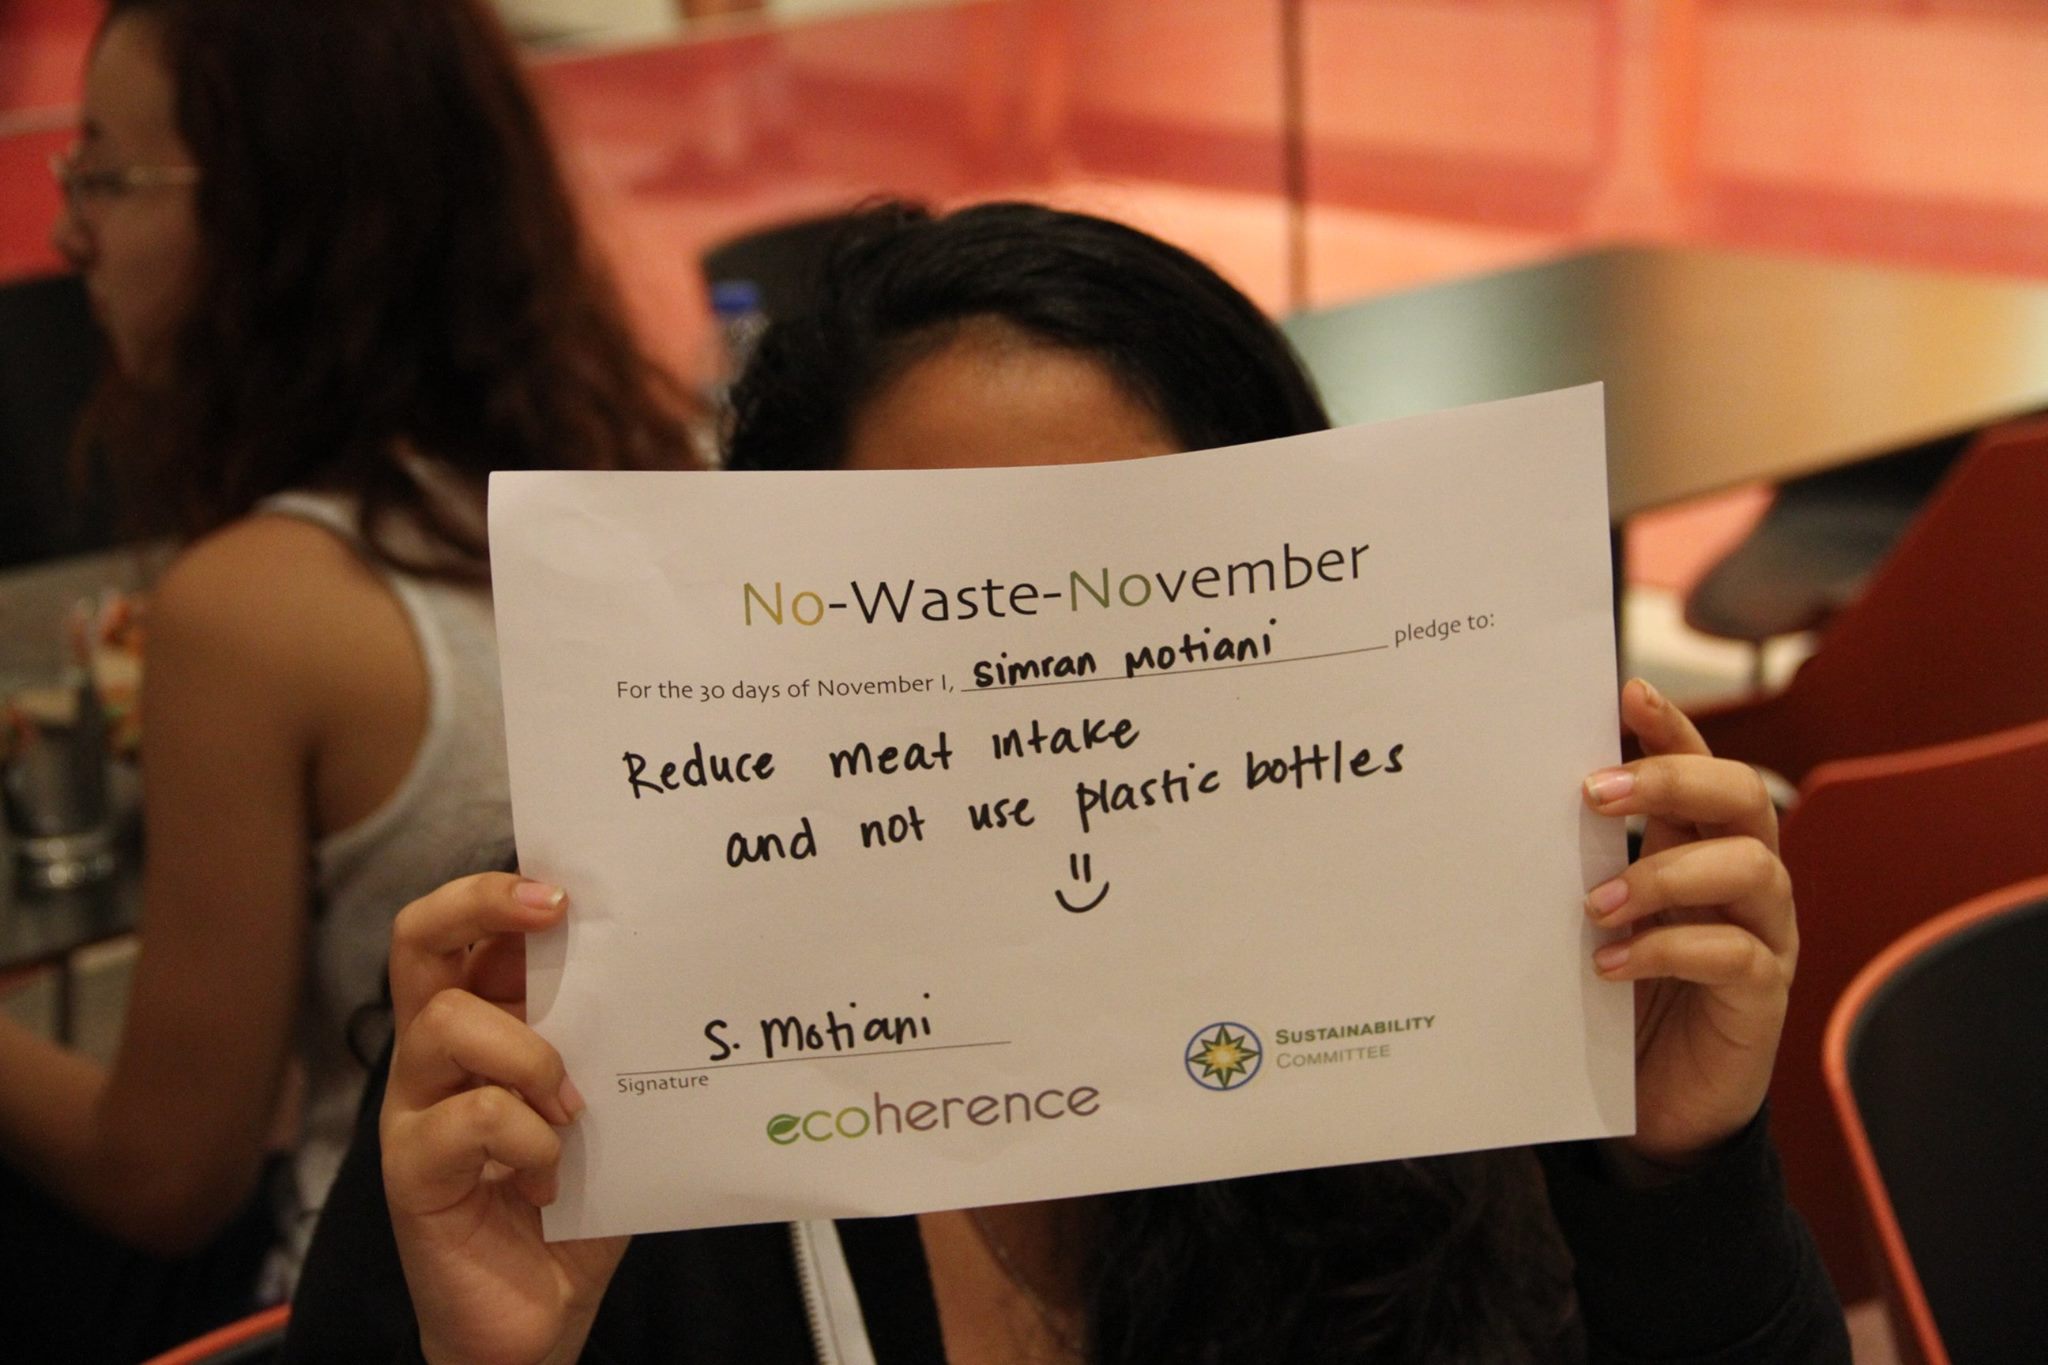 No-Waste-November
For the 30 days of November I, Simran Motiani pledge to:
Reduce meat intake
and not use plastic bottles
S. Motiani
Signature
ecoherence
SUSTAINABILITY
COMMITTEE